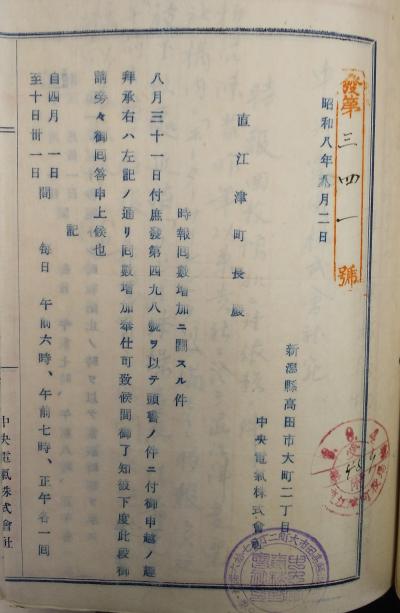 發第三四一號
昭和八年九月二日
新潟縣高田市大町二丁目
中央電氣株式會
直江津町長殿
時報回數增加ニ關スル件
八月三十一日付庶發第四九八號ヲ以テ頭書ノ件ニ付御申越ノ趣
拜承右ハ左記ノ通リ回數增加奉仕可致候間御了知被下度此段御
請旁々御回答申上候也
記
自四月一日
至十日卅一日
間 每日 午前六時、午前七時、正午各一回
中央電氣株式會社